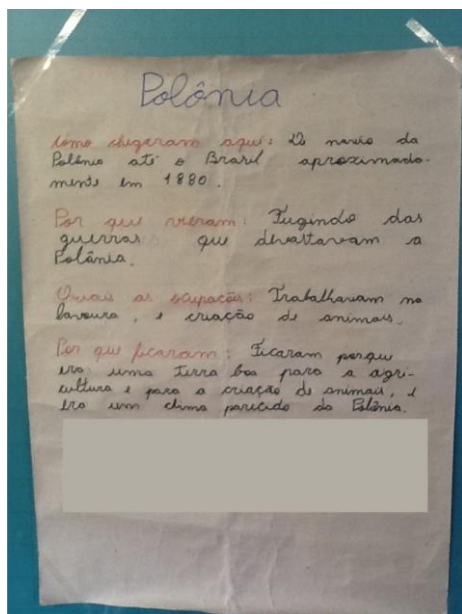 Polônia
Como chegaram aqui: De navio da
Polônia até o Brasil aproximada-
mente em 1880.
Por que vieram: Fugindo das
guerras que devastavam a
Polônia.
Quais as ocupações: Trabalhavam na
lavoura, e criação de animais.
Por que ficaram: Ficaram porque
era uma terra boa para a agri-
cultura e para a criação de animais, e
era um clima parecido da Polônia.